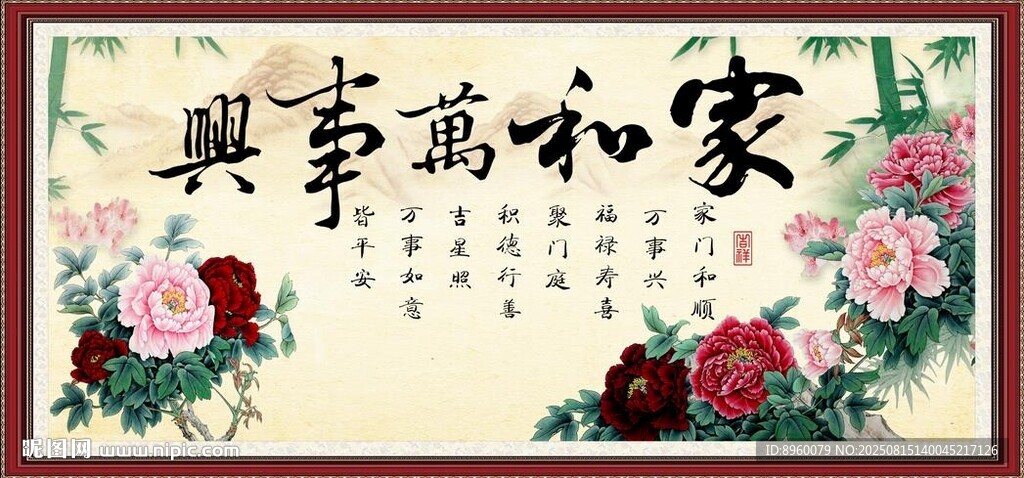 家和萬事興
家门和顺
万事兴
福禄寿喜
聚门庭
积德行善
吉星照
万事如意
皆平安
吉祥
昵图网 www.nipic.com
ID:8960079 NO:20250815140045217126